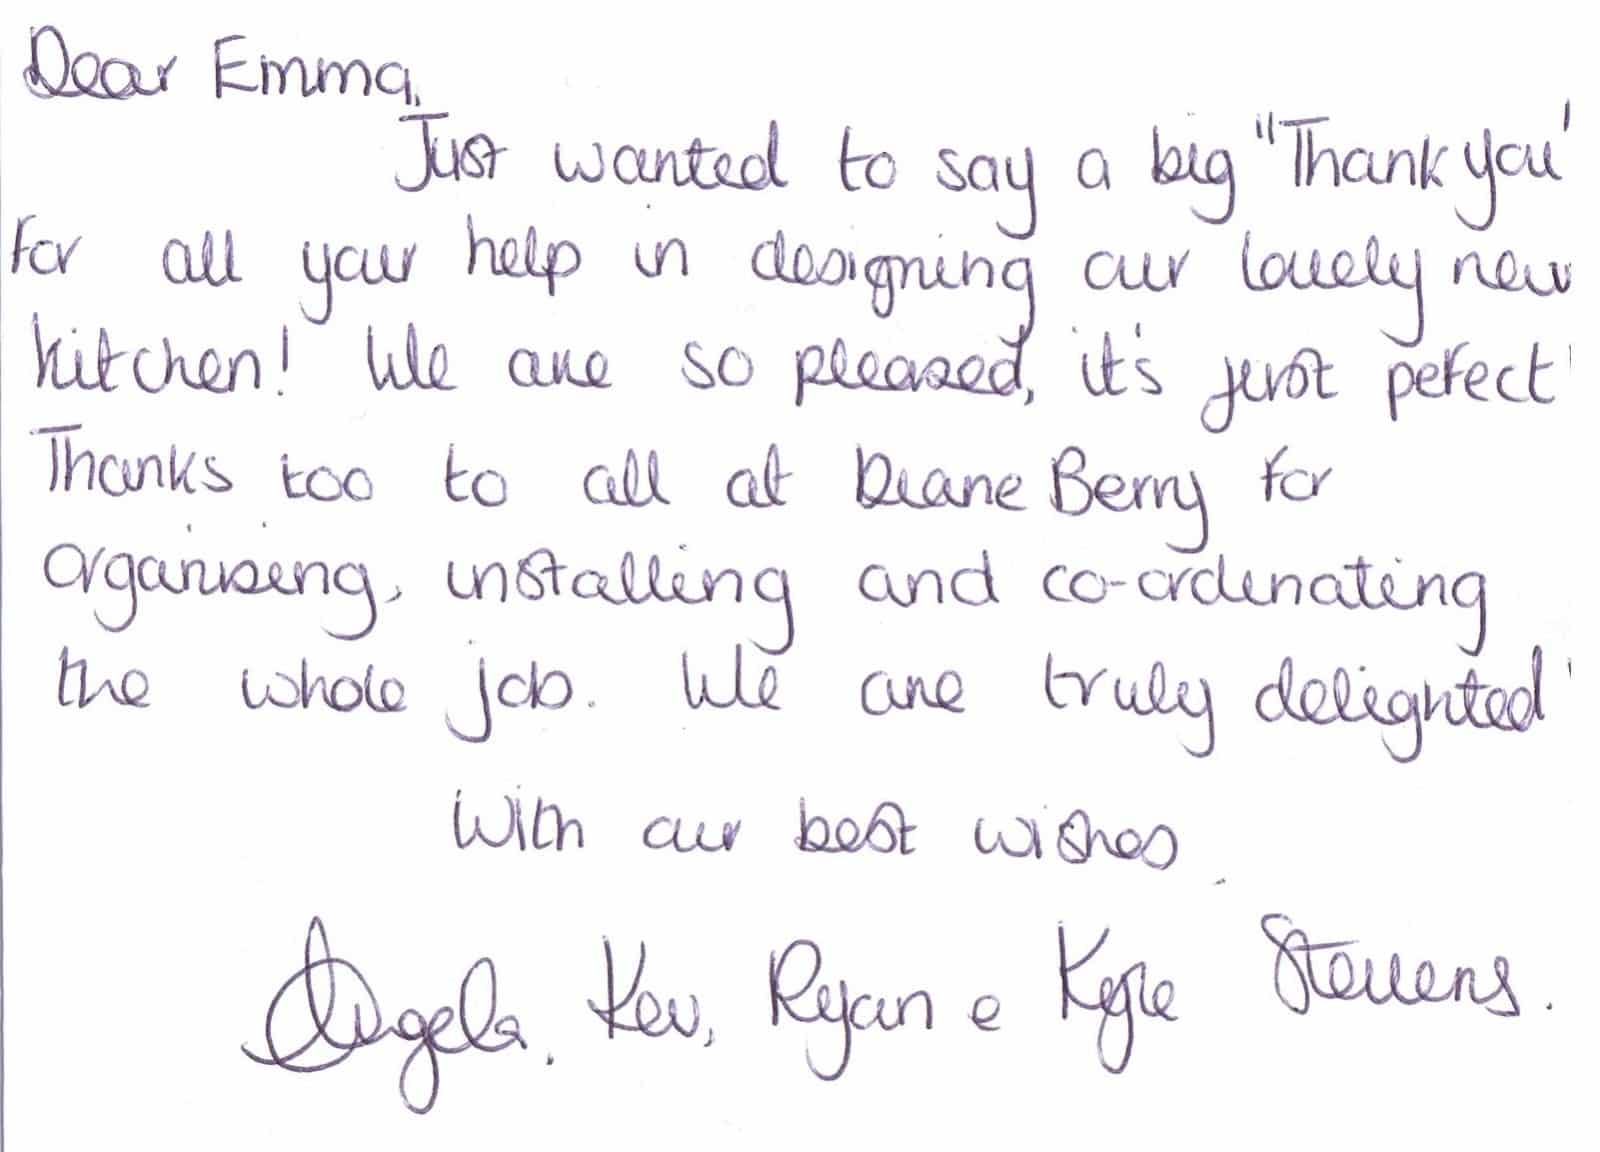 Dear Emma,
Just wanted to say a big "Thank you"
for all your help in designing our lovely new
kitchen! We are so pleased, it's just perfect!
Thanks too to all at Diane Berry for
organising, installing and co-ordinating
the whole job. We are truly delighted!
With our best wishes
Angela, Kev, Ryan & Kyle Stevens.